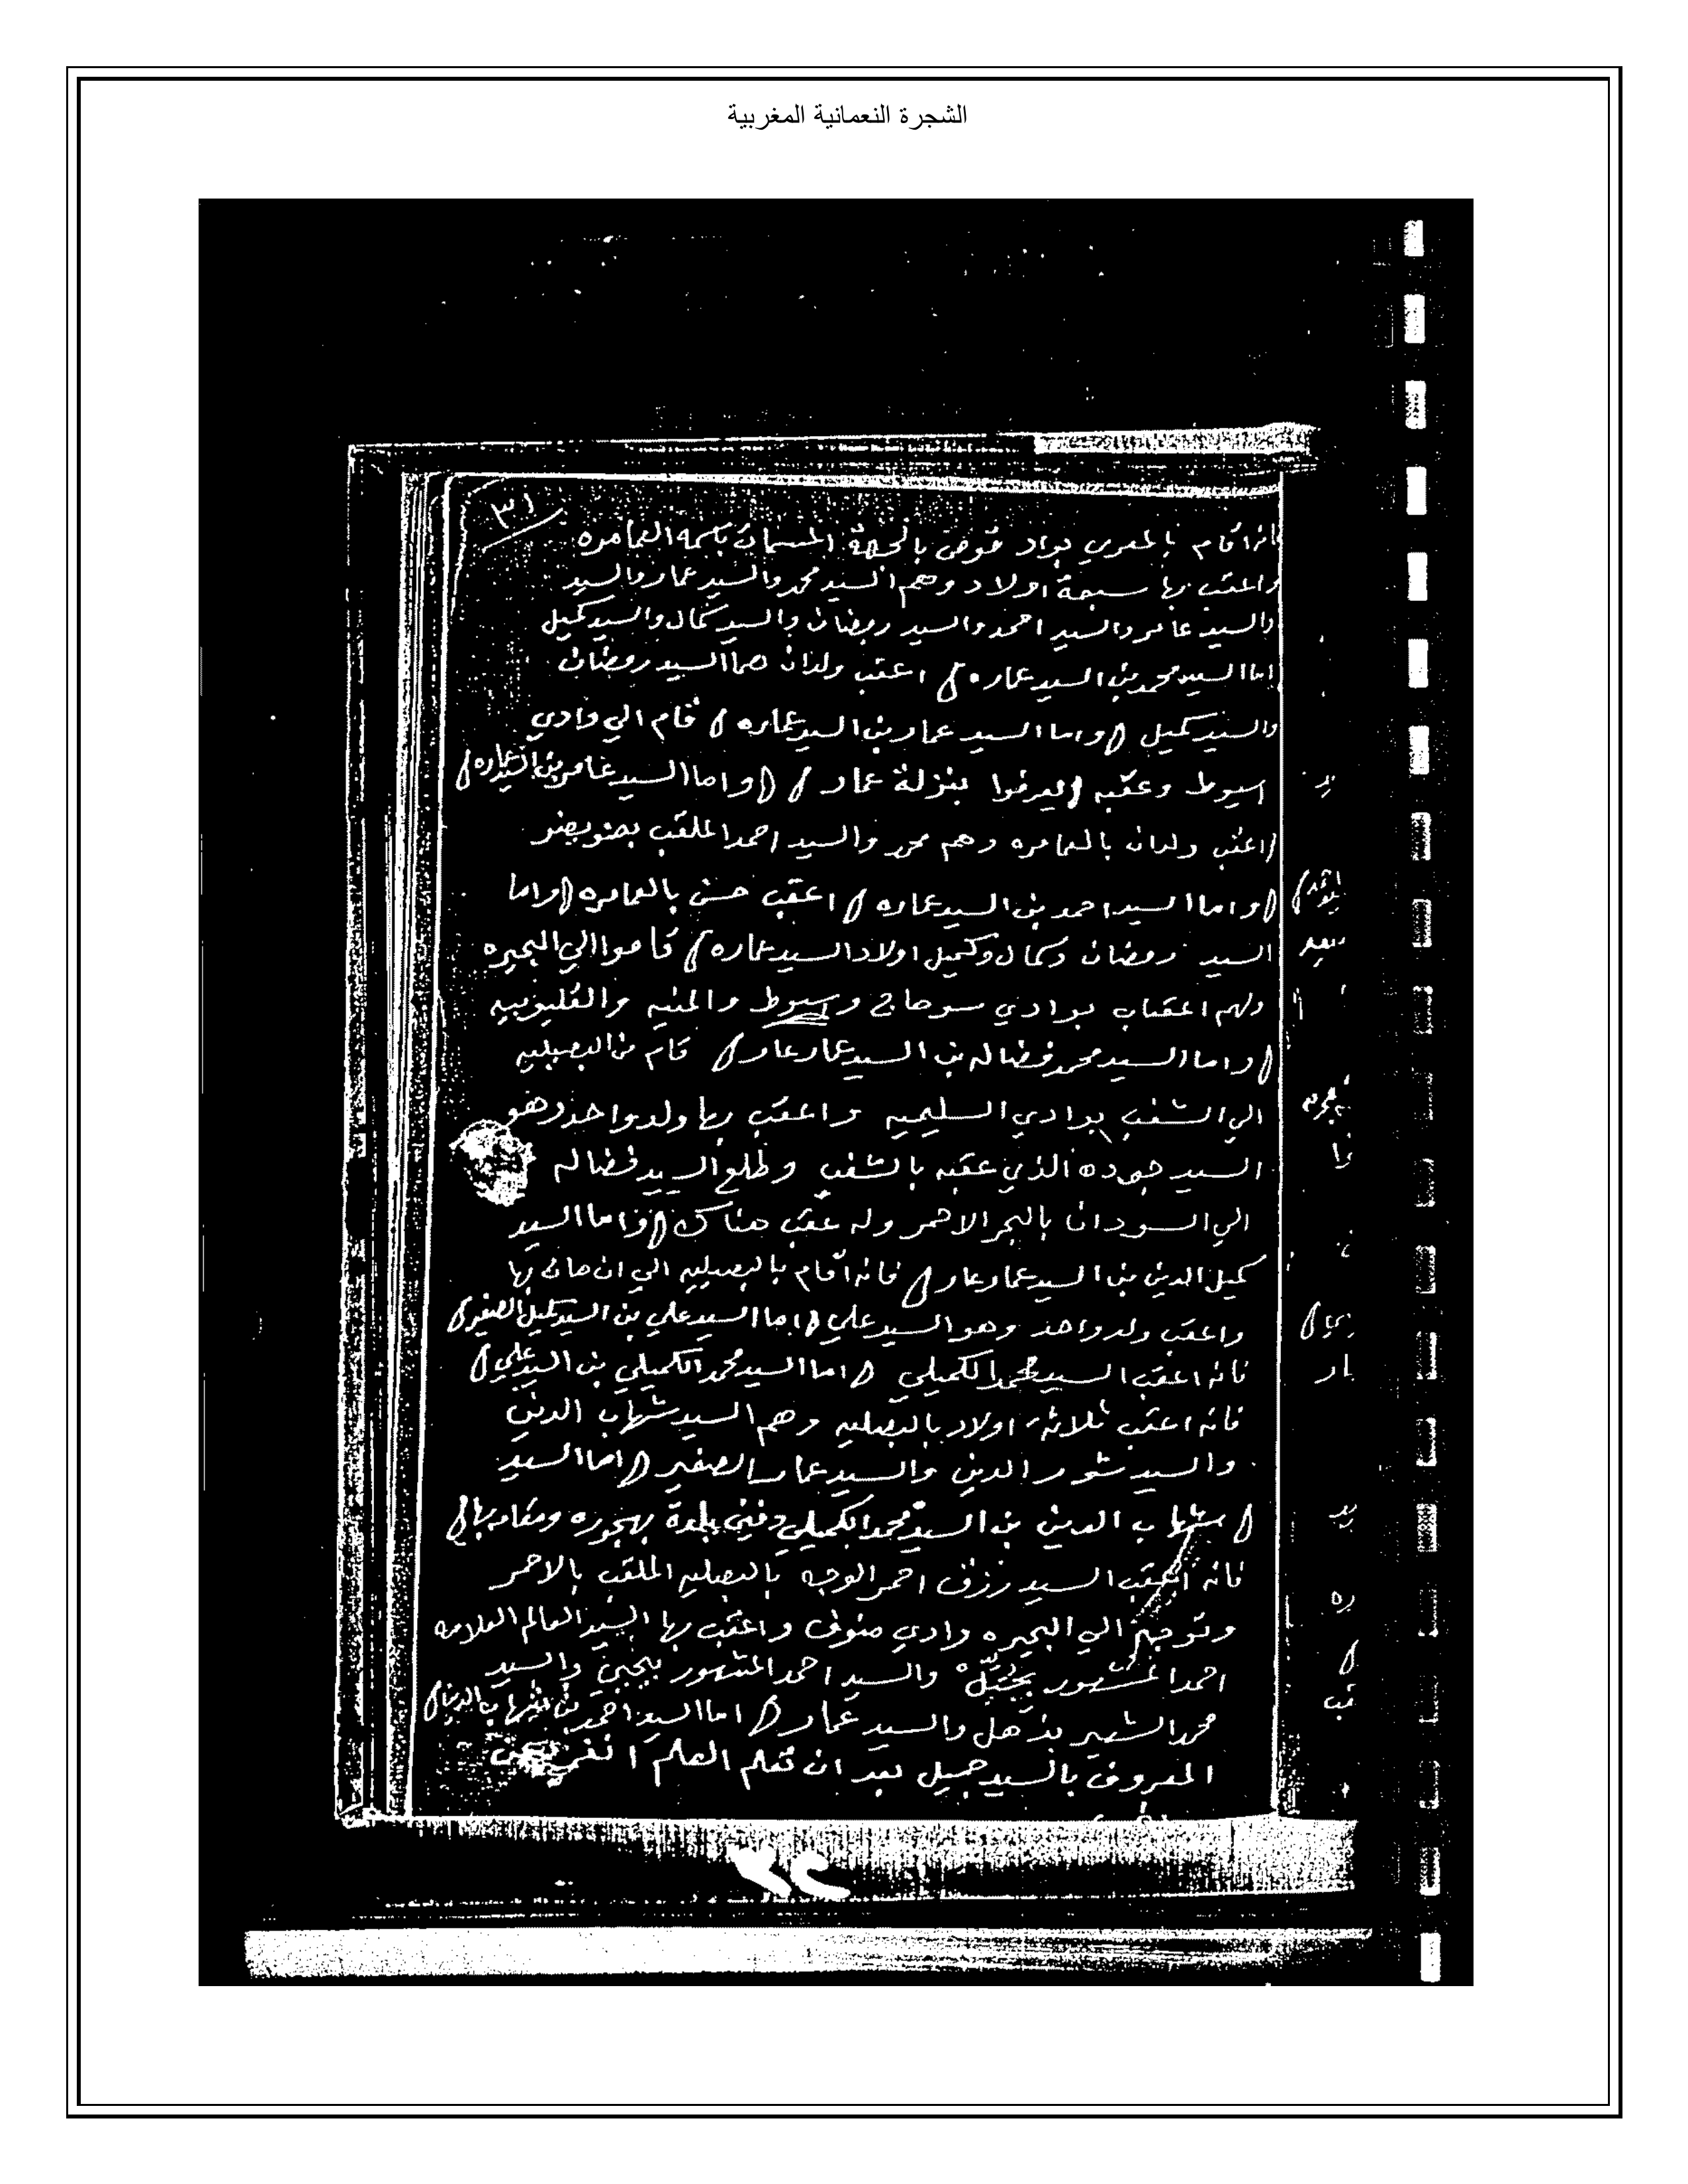 الشجرة النعمانية المغربية
٣١
اقام بواد قوص بالجهة المسمات باسمه العامره
واعقب بها سبعة اولاد وهم السيد محمد والسيد عمار والسيد
والسيد عامر والسيد احمد والسيد رمضان والسيد كمال والسيد كميل
اما السيد محمد بن السيد عماره اعقب ولدان هما السيد رمضان
والسيد كميل واما السيد عمار بن السيد عماره قام الي وادي
اسيوط وعقبه ليعرفوا بنزلة عمار واما السيد عامر بن السيد عماره
اعقب ولدان بالعامره وهم محمد والسيد احمد الملقب
واما السيد احمد بن السيد عماره اعقب حسن بالعامره واما
السيد رمضان وكمال وكميل اولاد السيد عماره قاموا الي البحيره
ولهم اعقاب بوادي سوهاج وسيوط والمنيه والقليوبيه
واما السيد محمد فضاله بن السيد عمار عار قام من البصيليه
الي الشغب بوادي السليميه واعقب بها ولد واحد وهو
السيد حموده الذي عقبه بالشغب وطلع السيد فضاله
الي السودان بالبحر الاحمر وله عقب هناك واما السيد
كميل الدين بن السيد عمار عار فانه اقام بالبصيليه الي ان مات بها
واعقب ولد واحد وهو السيد علي اما السيد علي بن السيد كميل الصغير
فانه اعقب السيد محمد الكميلي اما السيد محمد الكميلي بن السيد علي
فانه اعقب ثلاثة اولاد بالبصيليه وهم السيد شهاب الدين
والسيد نور الدين والسيد عمار الصغير اما السيد
شهاب الدين بن السيد محمد الكميلي دفين بلدة بهجوره ومقامه بها
فانه اعقب السيد رزق احمر الوجه بالبصيليه الملقب بالاحمر
وتوجه الي البحيره وادي منوف واعقب بها السيد العالم العلامه
احمد المشهور والسيد احمد المشهور والسيد
محمد الشهير بذهل والسيد عمار اما السيد احمد بن شهاب الدين
المعروف بالسيد جميل بعد ان تعلم العلم
٢٤